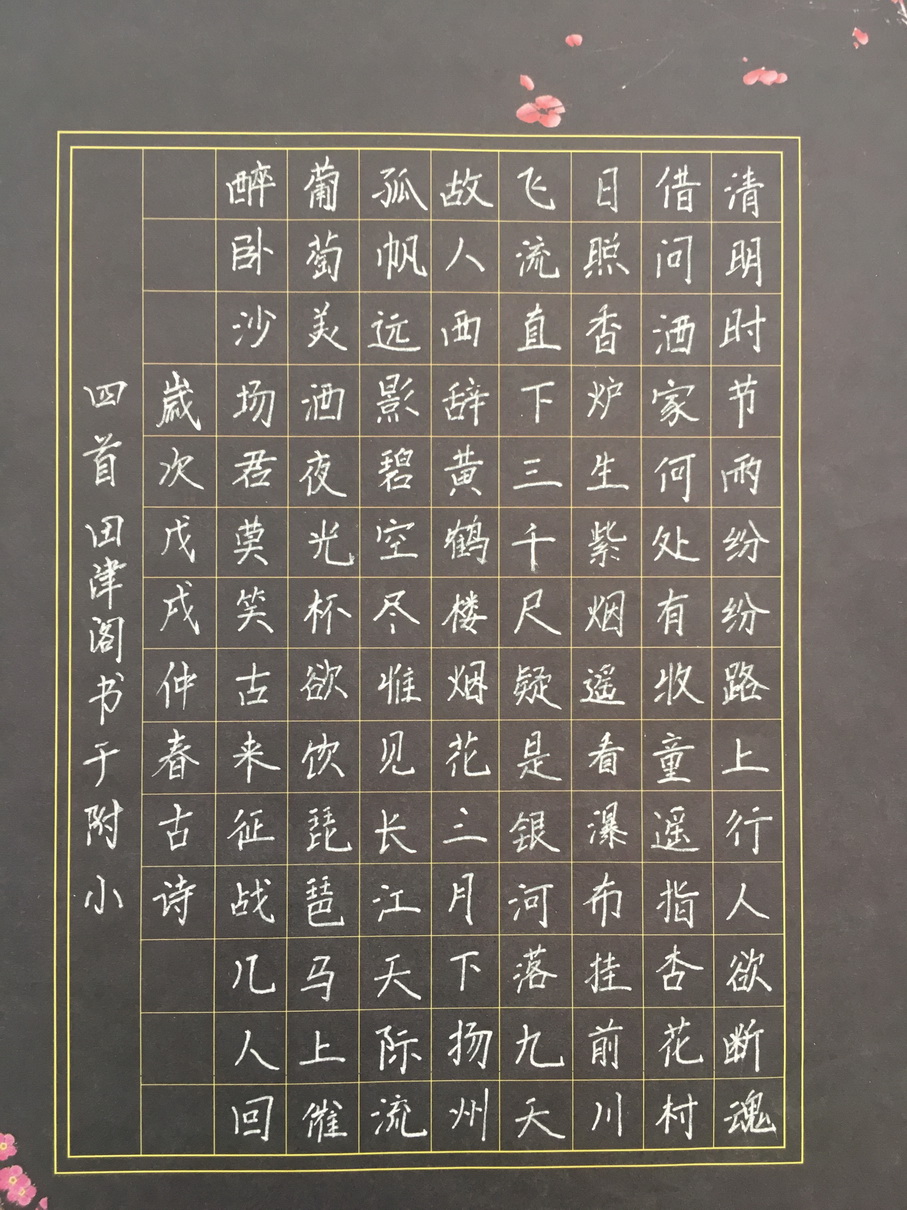 清明时节雨纷纷路上行人欲断魂
借问酒家何处有牧童遥指杏花村
日照香炉生紫烟遥看瀑布挂前川
飞流直下三千尺疑是银河落九天
故人西辞黄鹤楼烟花三月下扬州
孤帆远影碧空尽惟见长江天际流
葡萄美酒夜光杯欲饮琵琶马上催
醉卧沙场君莫笑古来征战几人回
歲次戊戌仲春古诗
四首田津阁书于附小